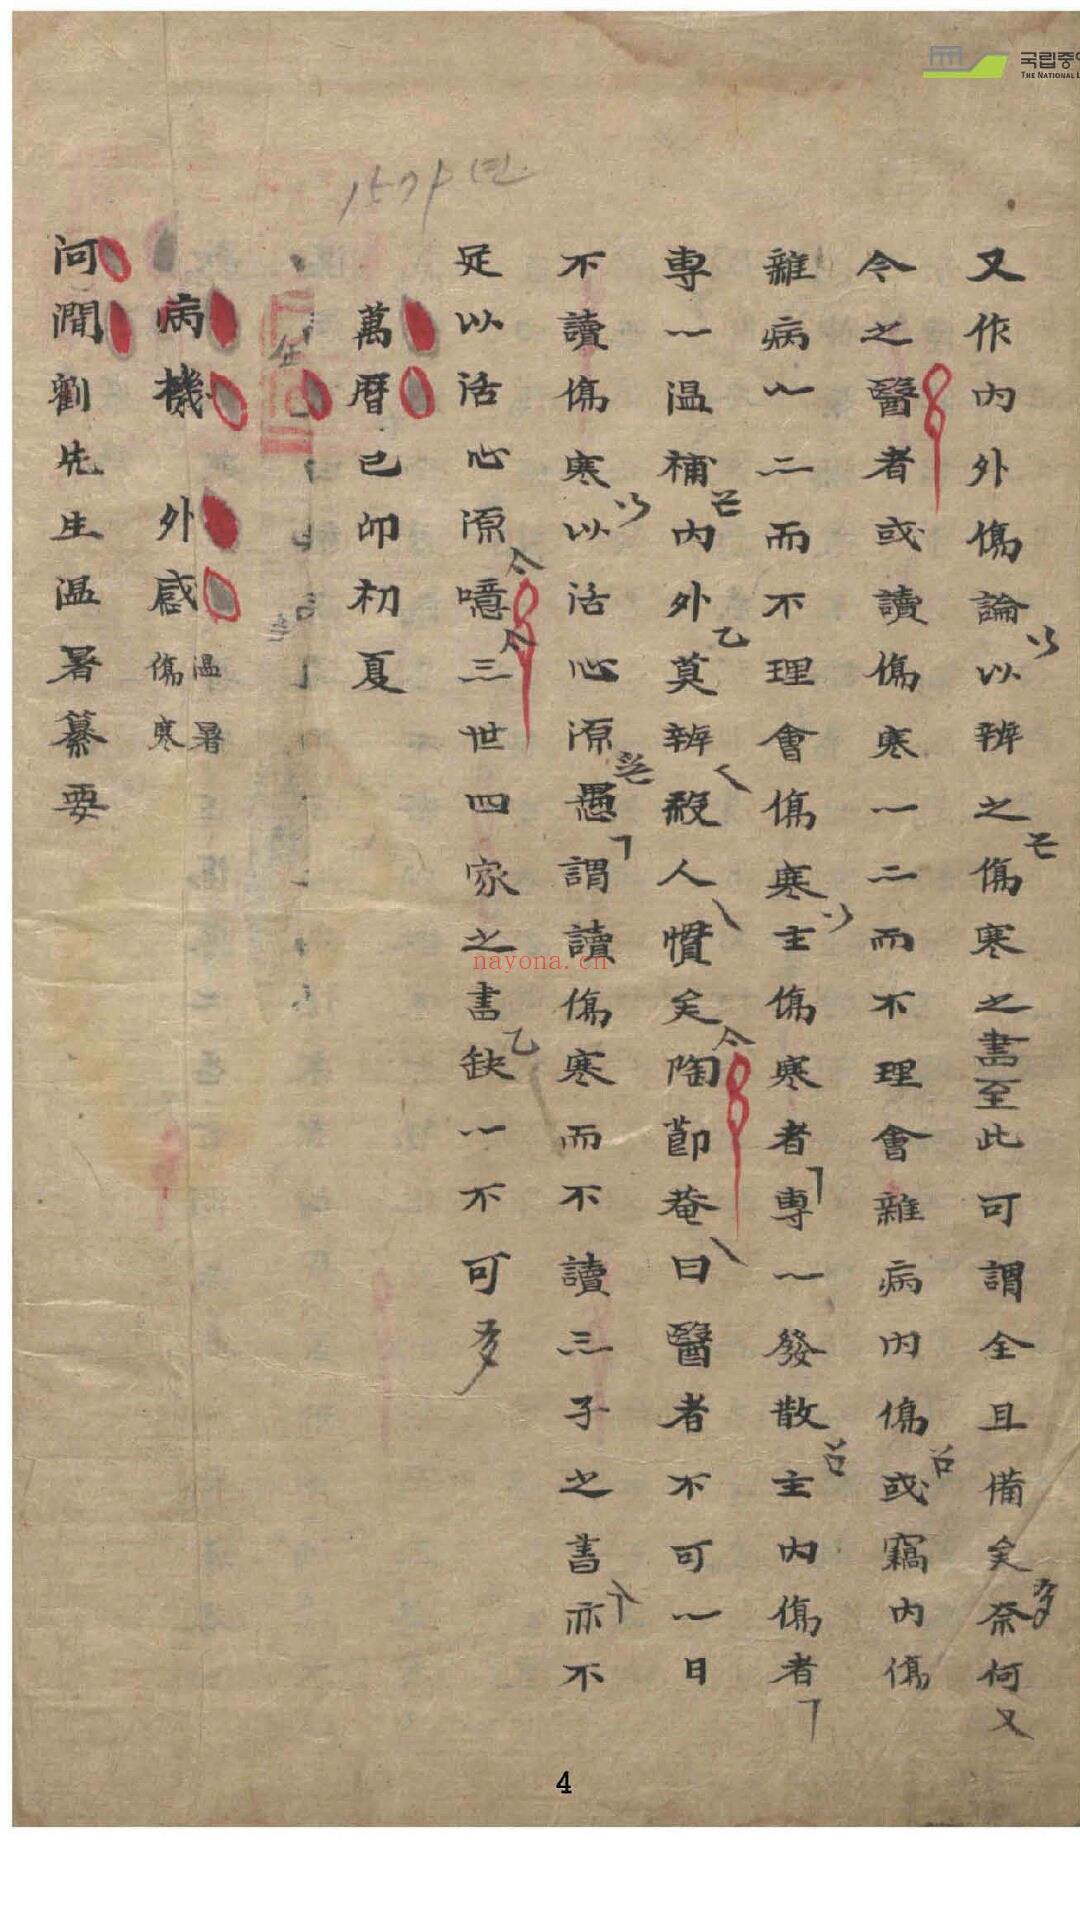 국립중
THE NATIONAL L
又作內外傷論以辨之傷寒之書至此可謂全且備矣奈何又
令之醫者或讀傷寒一二而不理會雜病內傷或竊內傷
雜病一二而不理會傷寒主傷寒者專一發散主內傷者
專一溫補內外莫辨殺人慣矣陶節菴曰醫者不可一日
不讀傷寒以活心源愚謂讀傷寒而不讀三子之書亦不
足以活心源噫三世四家之書缺一不可
萬曆己卯初夏
病機 外感 溫暑 傷寒
河澗劉先生溫暑纂要
nayona.cn
4